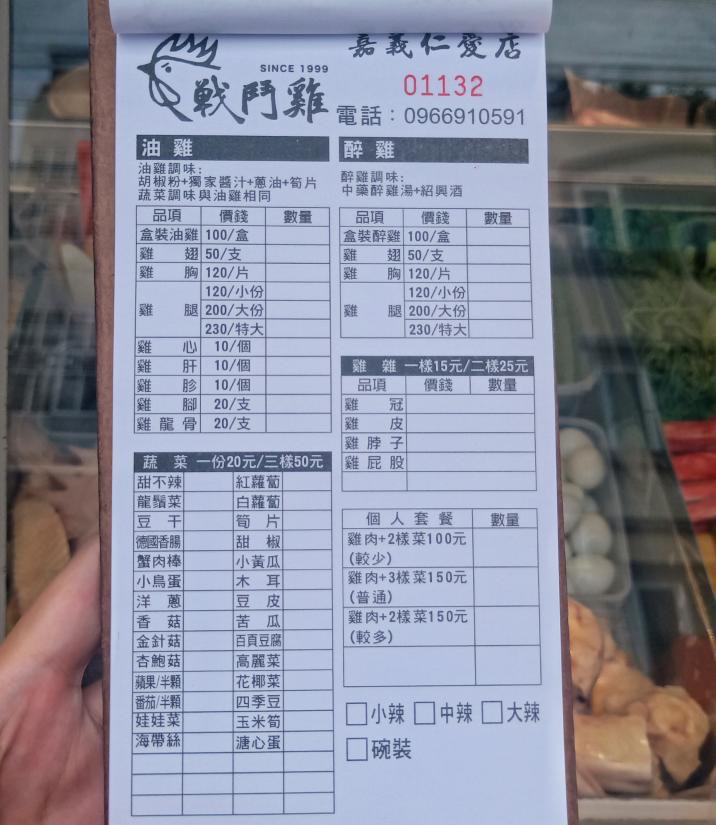 嘉義仁愛店
SINCE 1999
戰鬥雞
01132
電話：0966910591
油雞
油雞調味：
胡椒粉+獨家醬汁+蔥油+筍片
蔬菜調味與油雞相同
品項 價錢 數量
盒裝油雞 100/盒
雞翅 50/支
雞胸 120/片
雞腿 120/小份
200/大份
230/特大
雞心 10/個
雞肝 10/個
雞胗 10/個
雞腳 20/支
雞龍骨 20/支
蔬菜 一份20元/三樣50元
甜不辣 紅蘿蔔
龍鬚菜 白蘿蔔
豆干 筍片
德國香腸 甜椒
蟹肉棒 小黃瓜
小鳥蛋 木耳
洋蔥 豆皮
香菇 苦瓜
金針菇 百頁豆腐
杏鮑菇 高麗菜
蘋果/半顆 花椰菜
番茄/半顆 四季豆
娃娃菜 玉米筍
海帶絲 溏心蛋
醉雞
醉雞調味：
中藥醉雞湯+紹興酒
品項 價錢 數量
盒裝醉雞 100/盒
雞翅 50/支
雞胸 120/片
雞腿 120/小份
200/大份
230/特大
雞雜 一樣15元/二樣25元
品項 價錢 數量
雞冠
雞皮
雞脖子
雞屁股
個人套餐 數量
雞肉+2樣菜100元
(較少)
雞肉+3樣菜150元
(普通)
雞肉+2樣菜150元
(較多)
小辣 中辣 大辣
碗裝